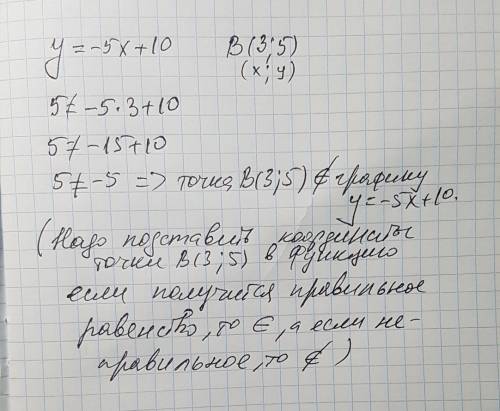 y = -5x + 10 B(3;5)
(x; y)
5 ≠ -5·3+10
5 ≠ -15+10
5 ≠ -5 => точка B(3;5) ∉ графику
y = -5x+10.
(Надо подставить координаты
точки B(3;5) в функцию
если получится правильное
равенство, то ∈, а если не-
правильное, то ∉)